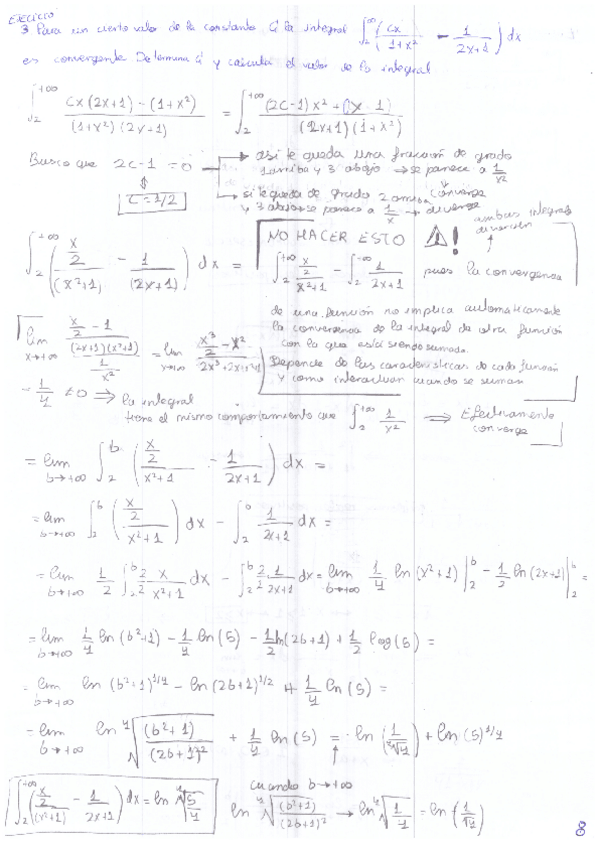 EJERCICIO
3 Para un cierto valor de la constante C, la integral ∫₂^{+∞} (Cx/(1+x²) - 1/(2x+1)) dx
es convergente. Determina C y calcula el valor de la integral
∫₂^{+∞} (Cx(2x+1) - (1+x²))/((1+x²)(2x+1)) = ∫₂^{+∞} ((2C-1)x² + Cx - 1)/((2x+1)(1+x²))
Busco que 2C-1 = 0 → así te queda una fracción de grado
1 arriba y 3 abajo → se parece a 1/x²
converge
⇕
C = 1/2
si te queda de grado 2 arriba
y 3 abajo → se parece a 1/x → diverge
ambas integrales
divergen
∫₂^{+∞} ((x/2)/(x²+1) - 1/(2x+1)) dx =
NO HACER ESTO ⚠!
∫₂^{+∞} (x/2)/(x²+1) - ∫₂^{+∞} 1/(2x+1) pues la convergencia
de una función no implica automáticamente
la convergencia de la integral de otra función
con la que está siendo sumada.
Depende de las características de cada función
y como interactúan cuando se suman
lim_{x→+∞} ((x/2 - 1)/((2x+1)(x²+1)))/(1/x²) = lim_{x→+∞} (x³/2 - x²)/(2x³+2x+x²+1)
= 1/4 ≠ 0 ⇒ la integral
tiene el mismo comportamiento que ∫₂^{+∞} 1/x² ⇒ Efectivamente
converge
= lim_{b→+∞} ∫₂^b ((x/2)/(x²+1) - 1/(2x+1)) dx =
= lim_{b→+∞} ∫₂^b ((x/2)/(x²+1)) dx - ∫₂^b 1/(2x+1) dx =
= lim_{b→+∞} 1/2 ∫₂^b 2/2 x/(x²+1) dx - ∫₂^b 2/2 1/(2x+1) dx = lim_{b→+∞} 1/4 ln(x²+1)|₂^b - 1/2 ln(2x+1)|₂^b =
= lim_{b→+∞} 1/4 ln(b²+1) - 1/4 ln(5) - 1/2 ln(2b+1) + 1/2 log(5) =
= lim_{b→+∞} ln(b²+1)^{1/4} - ln(2b+1)^{1/2} + 1/4 ln(5) =
= lim_{b→+∞} ln ⁴√((b²+1)/(2b+1)²) + 1/4 ln(5) = ln(1/⁴√4) + ln(5)^{1/4}
↑
cuando b→+∞
∫₂^{+∞} ((x/2)/(x²+1) - 1/(2x+1)) dx = ln ⁴√(5/4)
ln ⁴√((b²+1)/(2b+1)²) → ln ⁴√(1/4) = ln(1/⁴√4)
8